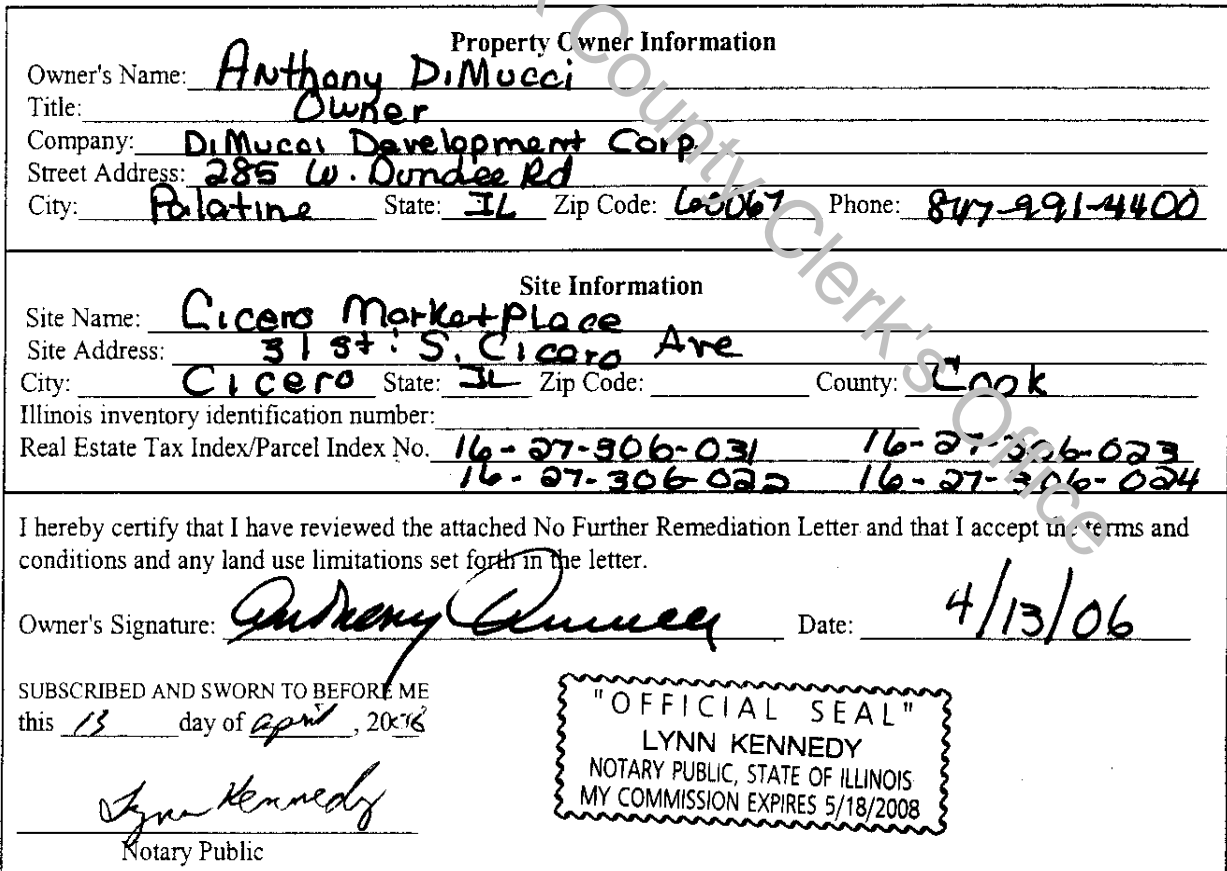 County Clerk's Office
Property Owner Information
Owner's Name: Anthony DiMucci
Title: Owner
Company: DiMucci Development Corp.
Street Address: 285 W. Dundee Rd
City: Palatine State: IL Zip Code: 60067 Phone: 847-991-4400
Site Information
Site Name: Cicero MarketPlace
Site Address: 31st: S. Cicero Ave
City: Cicero State: IL Zip Code: County: Cook
Illinois inventory identification number:
Real Estate Tax Index/Parcel Index No. 16-27-306-031 16-27-306-023
16-27-306-022 16-27-306-024
I hereby certify that I have reviewed the attached No Further Remediation Letter and that I accept the terms and
conditions and any land use limitations set forth in the letter.
Owner's Signature: Anthony DiMucci Date: 4/13/06
SUBSCRIBED AND SWORN TO BEFORE ME
this 13 day of April, 2006
"OFFICIAL SEAL"
LYNN KENNEDY
NOTARY PUBLIC, STATE OF ILLINOIS
MY COMMISSION EXPIRES 5/18/2008
Lynn Kennedy
Notary Public